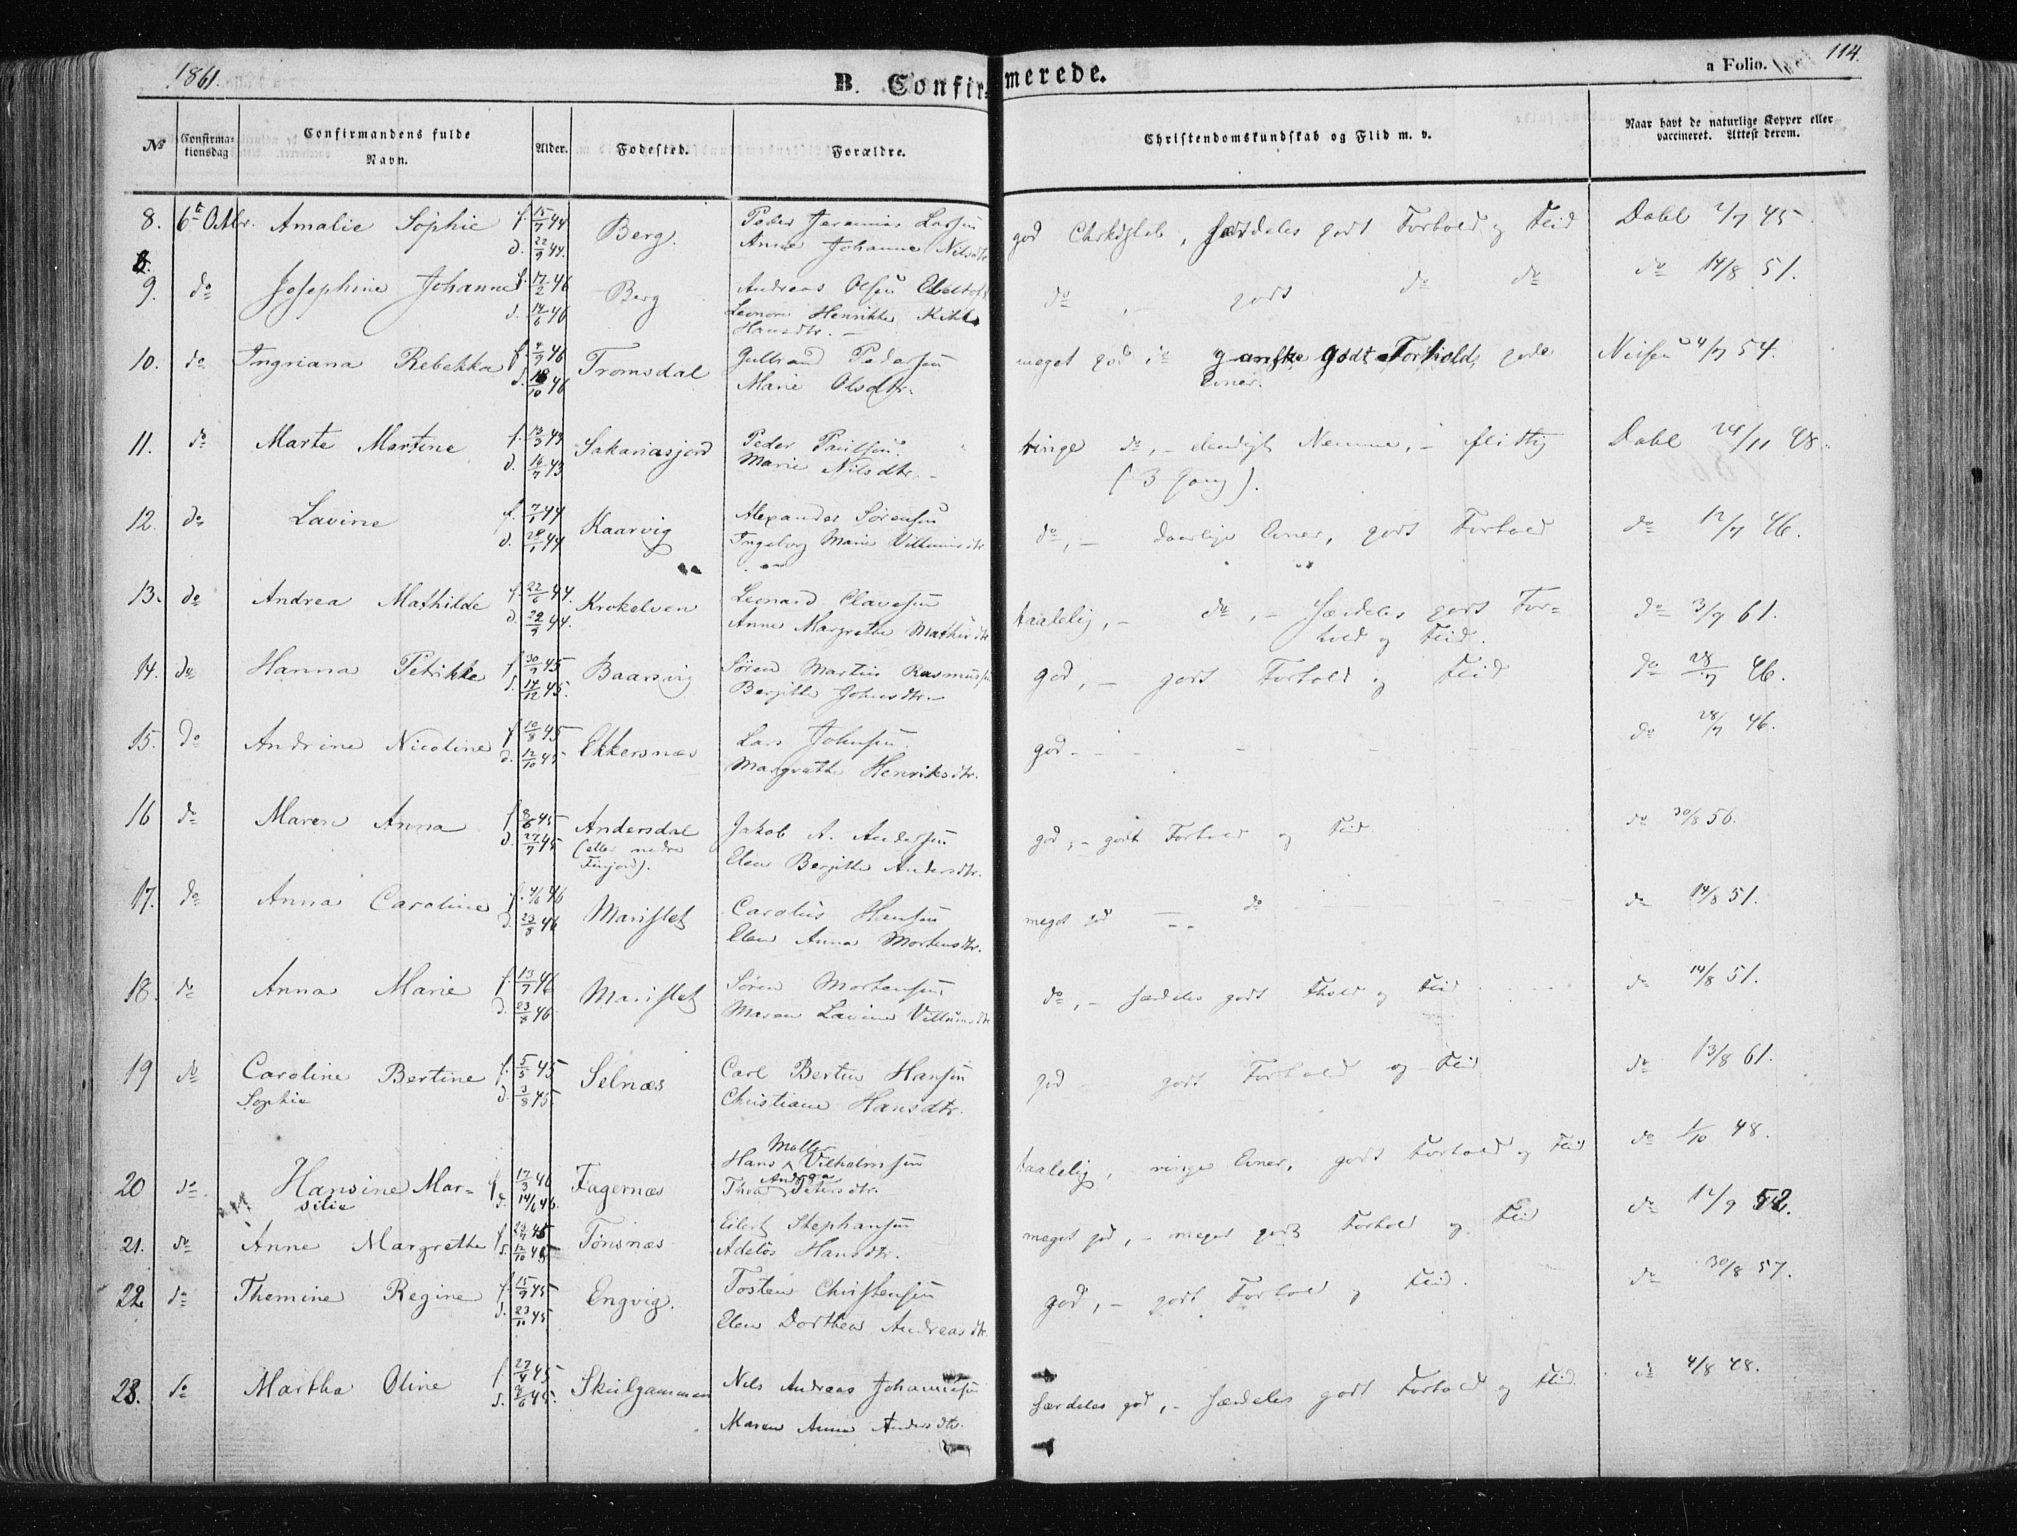 1861.
B. Confirmerede.
a Folio.
114.
No
Confirmationsdag
Confirmandens fulde Navn.
Alder.
Fødested.
Forældre.
Christendomskundskab og Flid m. v.
Naar havt de naturlige Kopper eller vaccineret. Attest derom.
8. 6t Octbr. Amalie Sophie f. 15/7 44 Berg. Peder Jeremias Larsen god , særdeles godt Forhold og Flid Dahl 2/7 45
d. 22/9 44. Anne Johanne Nilsdtr
9. do Josephine Johanne f. 17/2 46 Berg Andreas Olsen do godt do do do 14/8 51.
d. 14/6 46 Henrikke
Hansdtr.
10. do Ingriana Rebekka f. 46 Tromsdal Peder sen meget god ganske godt Forhold, gode Nilsen 4/7 54.
d. 18/10 46 Marie Olsdtr. Evner.
11. do Marte Martine f. 12/3 43 Sakariasjord Peder Paulsen. ringe do, - elendigt Nemme, - flittig Dahl 24/11 48.
d. 16/7 43 Marie Nilsdtr. (3 Gang).
12. do Lavine f. 7/1 44 Kaarvig Alexander Sørensen do, - daarlige Evner, godt Forhold do 12/7 46.
d. 28/1 44 Ingeborg Marie Villumsdtr
13. do Andrea Mathilde f. 22/6 44. Krokelven Leonard Clavesen taalelig, - do, - særdeles godt For- do 3/9 61.
d. 22/9 44. Anne Margrethe Mathisdtr hold og Flid.
14. do Hanna Petrikke f. 30/9 45 Baarsvig Søren Martin Rasmussen god, - godt Forhold og Flid do 28/7 46.
d. 14/12 45. Bergitte Johnsdtr.
15. do Andrine Nicoline f. 10/8 45 Ekkersnæs Lars Johnsen god - - - do 28/7 46.
d. 12/10 45 Margrethe Henriksdtr.
16 do Maren Anna f. 8/6 45 Andersdal Jakob A. Andersen god, - godt Forhold og Flid do 30/8 56.
d. 27/7 45 (eller nedre Elen Bergitte Andersdtr.
Finjord).
17. do Anna Caroline f. 4/6 46 Marislet Carolus Hansen meget god do do 14/8 51.
d. 23/8 46 Elen Anna Mortensdtr.
18. do Anna Marie f. 13/7 46 Marislet Søren Mortensen do, - særdeles godt Fhold og Flid do 14/8 51.
d. 23/8 46. Maren Lavine Villumsdtr
19 do Caroline Bertine f. 5/5 45 Selnæs Carl Bertin Hansen god godt Forhold og Flid do 13/8 61.
Sophie d. 3/8 45. Christiane Hansdtr.
Møller
20 do. Hansine Mar- f. 17/3 46 Fagernæs Hans Vilhelmsen taalelig, ringe Evner, godt Forhold og Flid do 1/10 48.
silie d. 14/6 46. Thea Andrea Petersdtr.
21. do Anne Margrethe f. 24/7 45 Tønsnæs Eilert Stephansen meget god, - meget godt Forhold og Flid do 12/9 52.
d. 12/10 45 Adelus Hansdtr.
22 do Themine Regine f. 15/9 45 Engvig. Tosten Christensen god, - godt Forhold og Flid. do 30/8 57.
d. 23/10 45 Elen Dorthea Andreasdtr.
23. do Martha Oline f. 27/4 45 Skulgammen Nils Andreas Johannesen særdeles god, - særdeles godt Forhold og Flid. do 4/8 48.
d. 8/6 45. Maren Anna Andersdtr.